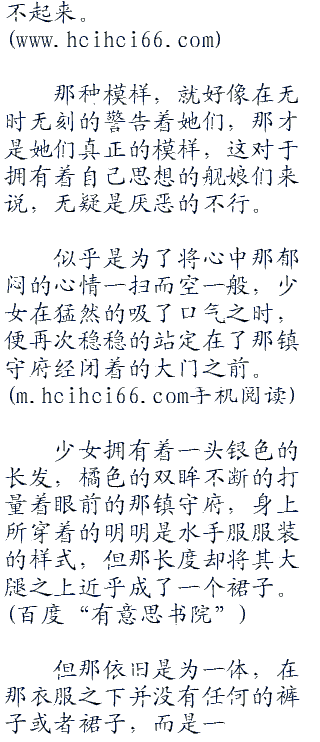 不起来。
(www.hcihci66.com)
那种模样，就好像在无
时无刻的警告着她们，那才
是她们真正的模样，这对于
拥有着自己思想的舰娘们来
说，无疑是厌恶的不行。
似乎是为了将心中那郁
闷的心情一扫而空一般，少
女在猛然的吸了口气之时，
便再次稳稳的站定在了那镇
守府经闭着的大门之前。
(m.hcihci66.com手机阅读)
少女拥有着一头银色的
长发，橘色的双眸不断的打
量着眼前的那镇守府，身上
所穿着的明明是水手服服装
的样式，但那长度却将其大
腿之上近乎成了一个裙子。
(百度“有意思书院”)
但那依旧是为一体，在
那衣服之下并没有任何的裤
子或者裙子，而是一